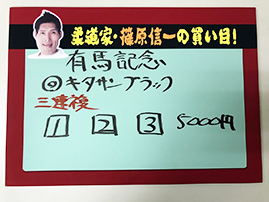 柔道家・篠原信一の買い目!
有馬記念
◎キタサンブラック
三連複
1 2 3 5000円